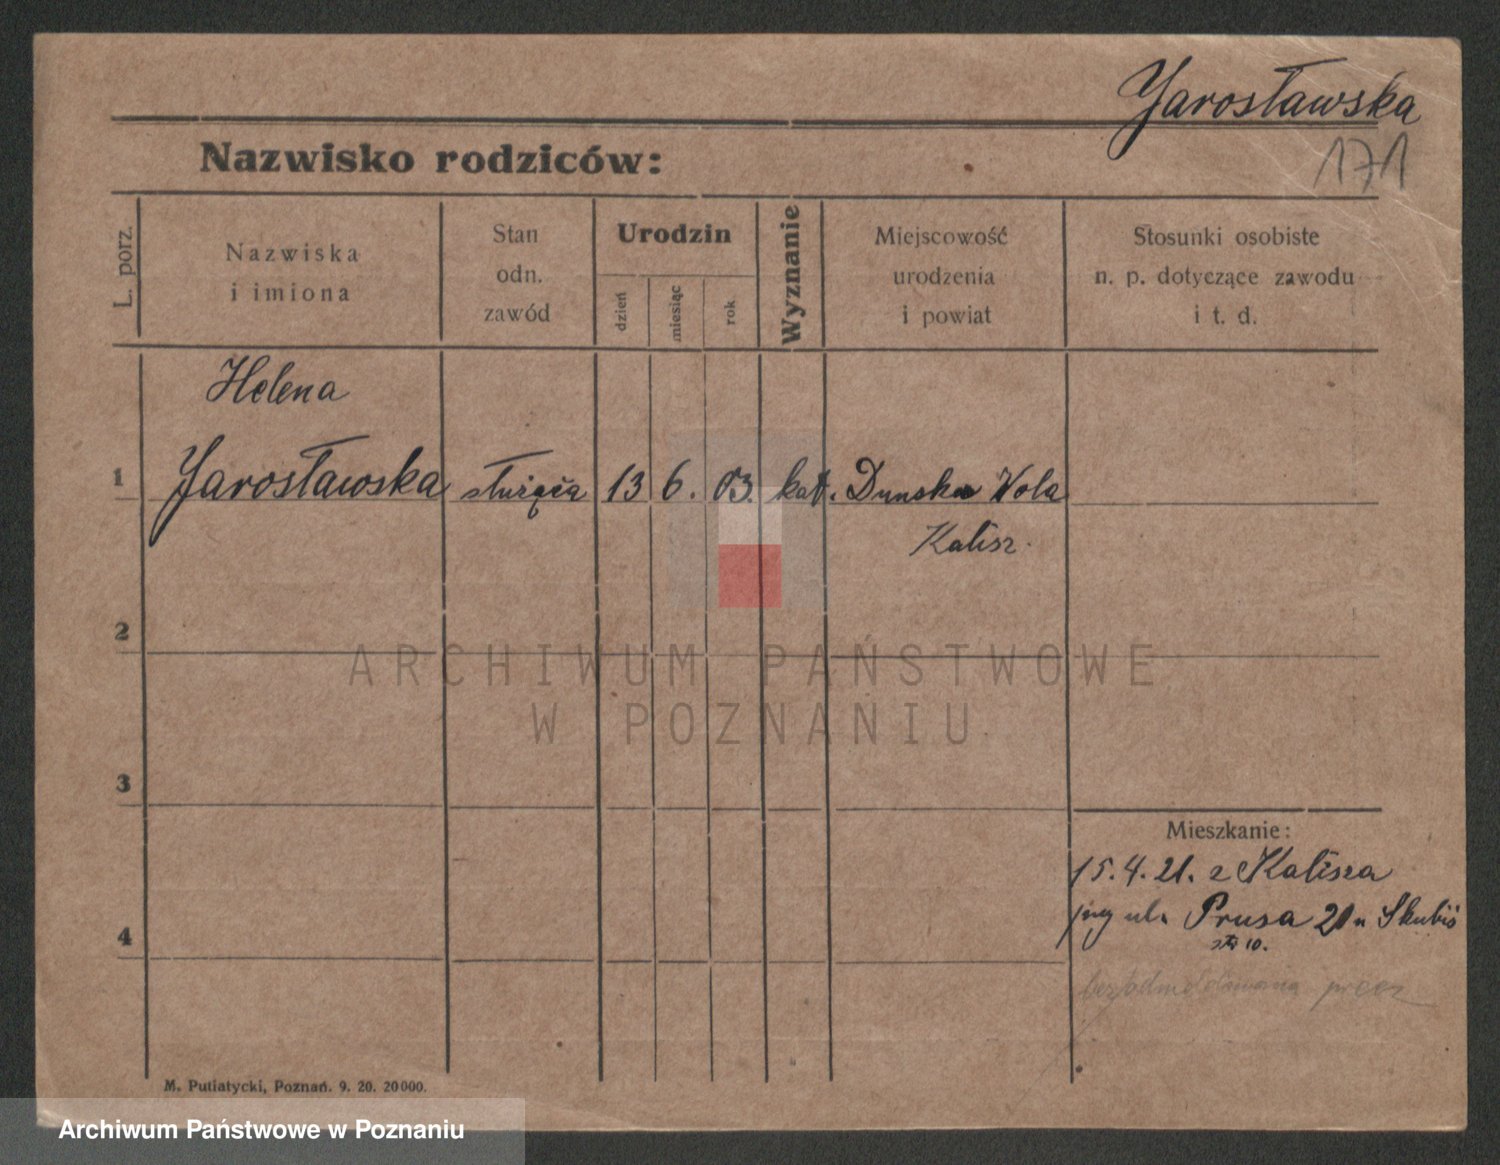 Jarosławska
171
Nazwisko rodziców:
L. porz.
Nazwiska
i imiona
Stan
odn.
zawód
Urodzin
dzień
miesiąc
rok
Wyznanie
Miejscowość
urodzenia
i powiat
Stosunki osobiste
n. p. dotyczące zawodu
i t. d.
Helena
1 Jarosławska służąca 13 6. 03. kat. Dunska Wola
Kalisz.
2
ARCHIWUM PAŃSTWOWE
W POZNANIU
3
Mieszkanie:
15.4.21. z Kalisza
ul. Prusa 20
4
10.
M. Putiatycki, Poznań. 9. 20. 20000.
Archiwum Państwowe w Poznaniu